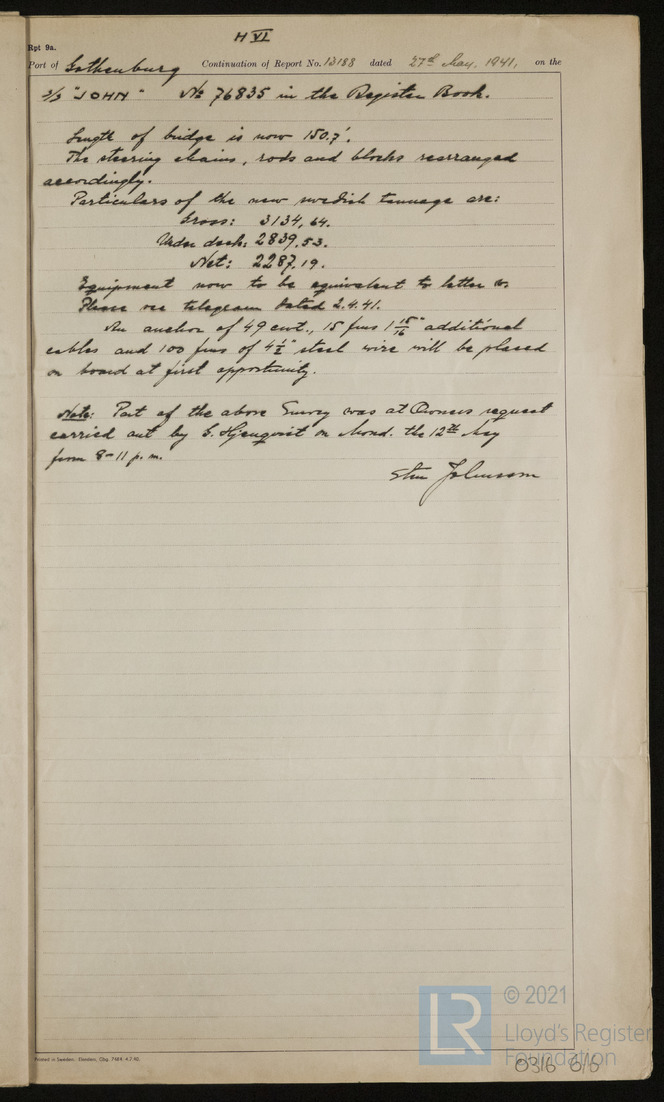 H VI
Rpt 9a.
Port of Gothenburg Continuation of Report No. 13188 dated 27th May. 1941, on the
S/S "JOHN" No 76835 in the Register Book.
Length of bridge is now 150.7'.
The steering chains, rods and blocks rearranged
accordingly.
Particulars of the new swedish tonnage are:
Gross: 3134,64.
Under deck: 2839,53.
Net: 2287,19.
Equipment now to be equivalent to letter
Please see telegram dated 2.4.41.
An anchor of 49 cwt., 15 fms 1 15/16" additional
cables and 100 fms of 4 1/2" steel wire will be placed
on board at first opportunity.
Note: Part of the above Survey was at Owners request
carried out by G. Hjenquist on Mond. the 12th May
from 8-11 p.m.
Sten Johnsson
© 2021
LR
Lloyd's Register
Foundation
Printed in Sweden. Elanders, Gbg. 7484. 4.7.40.
0316 616